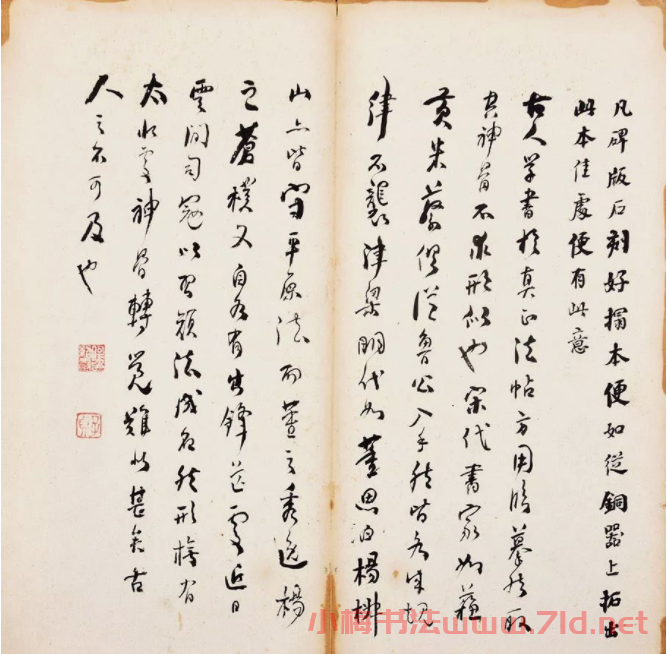 凡碑版石刻好搨本便如從銅器上拓出
此本佳處便有此意
古人學書於真正法帖方用臨摹然取
其神骨不求形似也宋代書家如蘇
黃米蔡俱從魯公入手然皆各成規
律不襲津梁明代如董思白楊椒
山亦皆守平原法而董之秀逸楊
之蒼樸又自各有出鋒芒處近日
雲間司寇以習顏法成名然形橅有
太似處神骨轉覺難似甚矣古
人之不可及也
小梅书法www.7ld.net